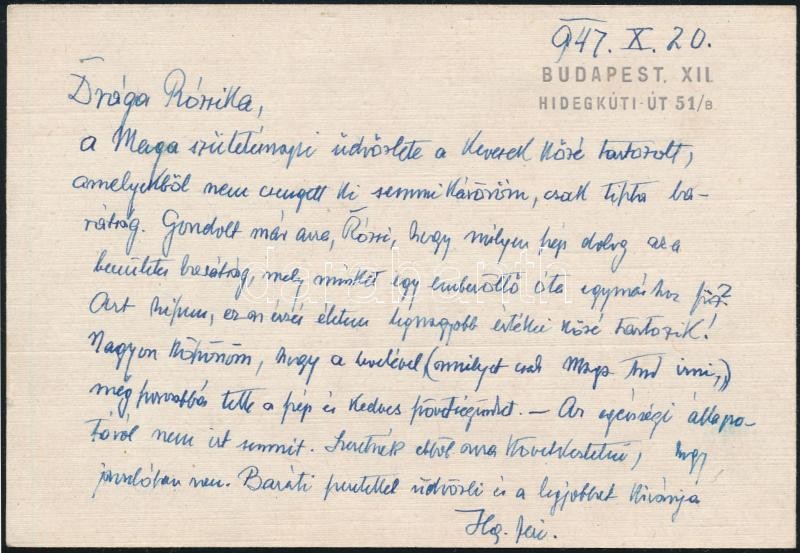 947. X. 20.
BUDAPEST. XII.
HIDEGKÚTI-ÚT 51/B.
Drága Rózsika,
a Maga születésnapi üdvözlete a kevesek közé tartozott,
amelyekből nem csengett ki semmi káröröm, csak tiszta ba-
rátság. Gondolt már arra, Rózsi, hogy milyen szép dolog az a
barátság, mely minket egy emberöltő óta egymáshoz fűz?
Azt hiszem, ez az érzés életem legnagyobb értékei közé tartozik!
Nagyon köszönöm, hogy a levelével (amilyet csak Maga tud írni,)
még szorosabbá tette a szép és kedves Az egészségi állapo-
táról nem írt semmit. Szeretnék ebből arra következtetni, hogy
javulóban van. Baráti szeretettel üdvözli és a legjobbat kívánja
darabanth